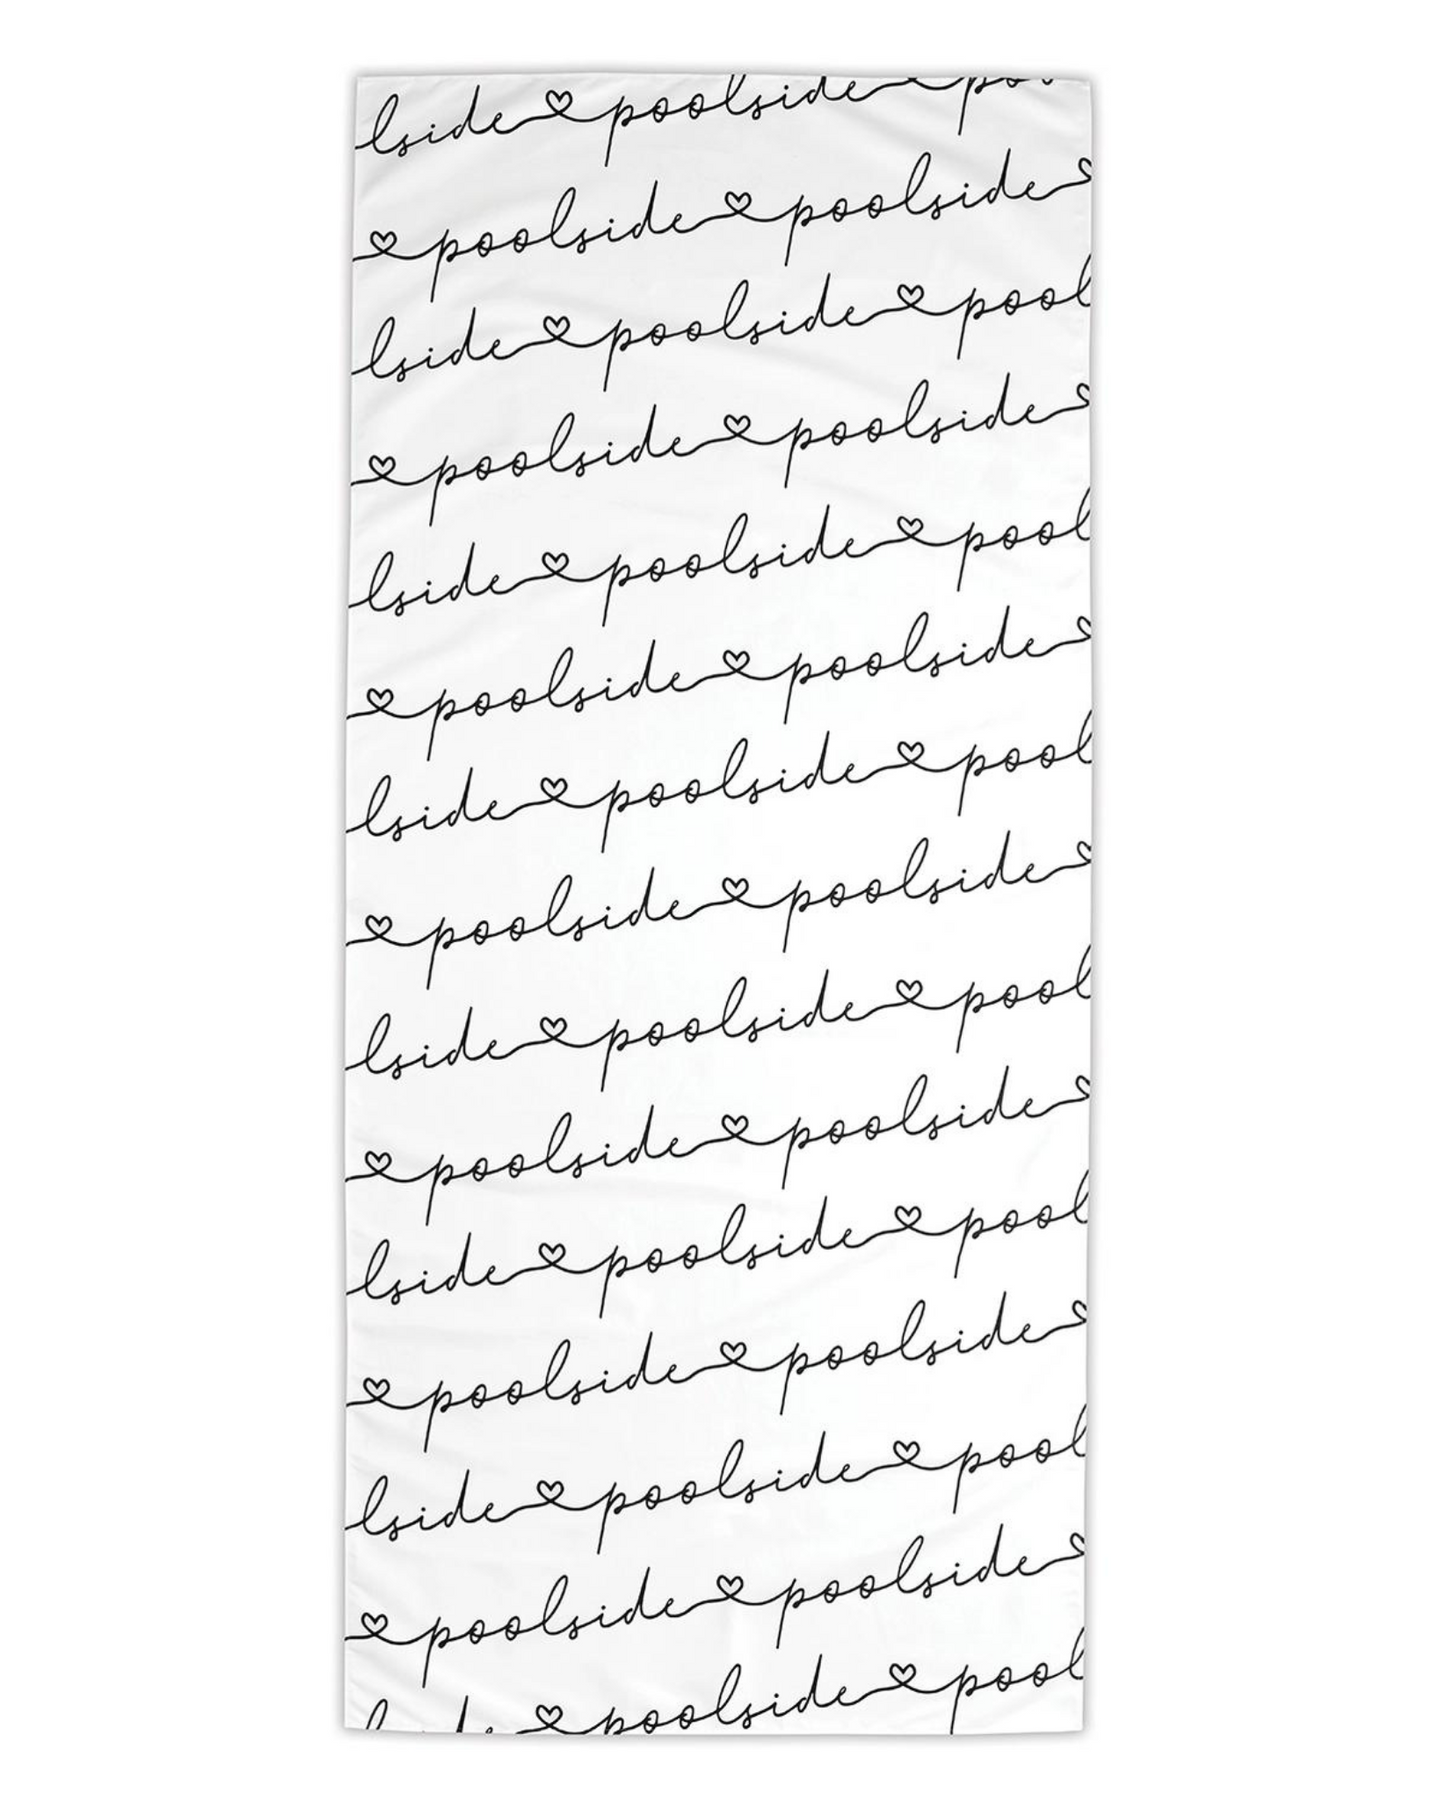 lside poolside poo
poolside poolside
lside poolside pool
poolside poolside
lside poolside pool
poolside poolside
lside poolside pool
poolside poolside
lside poolside pool
poolside poolside
lside poolside pool
poolside poolside
lside poolside pool
poolside poolside
poolside pool